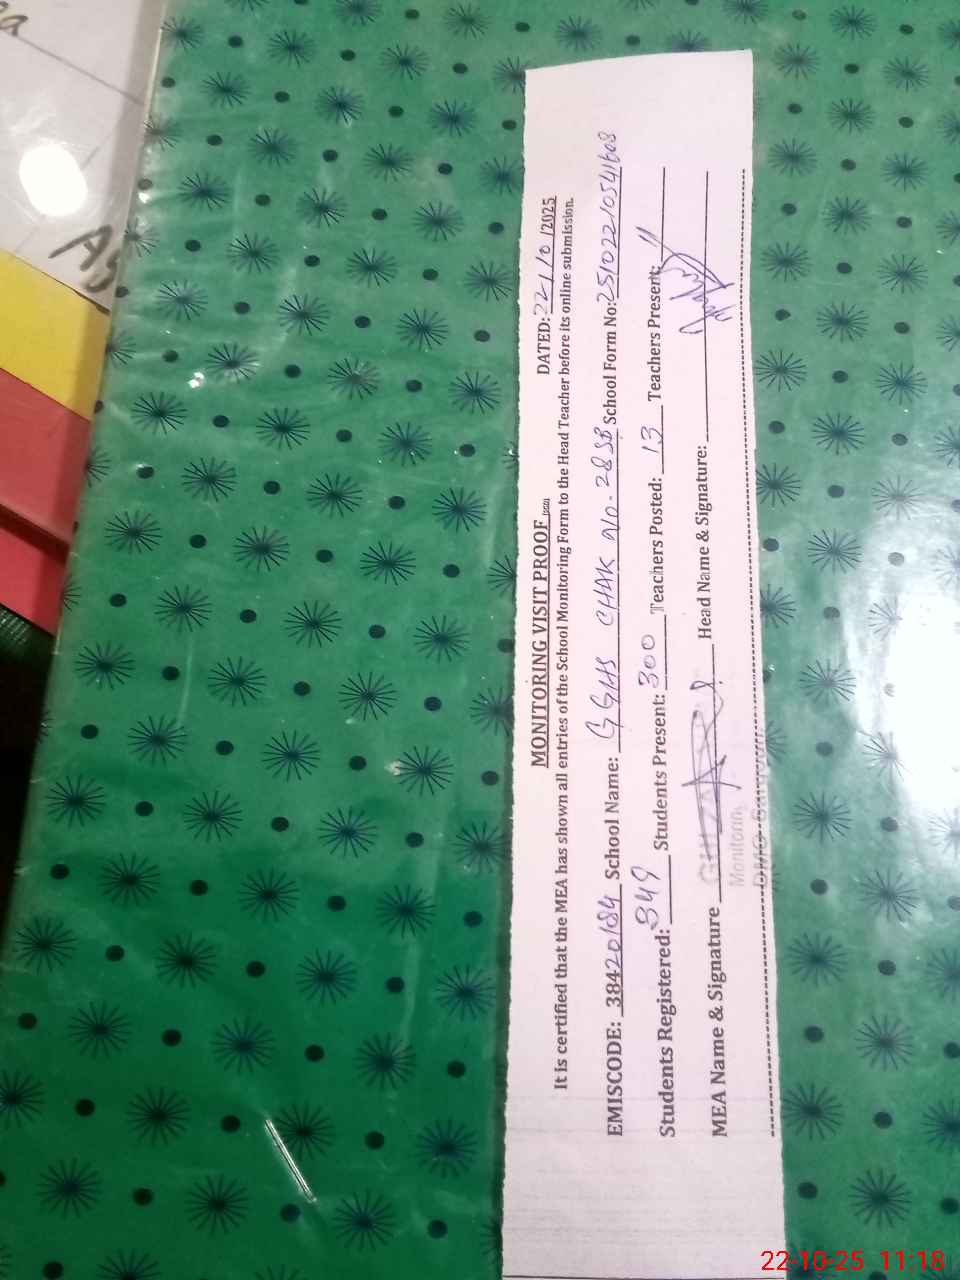 MONITORING VISIT PROOF
DATED: 22/10/2025
It is certified that the MEA has shown all entries of the School Monitoring Form to the Head Teacher before its online submission.
EMISCODE: 38420184 School Name: GGHS CHAK NO. 28 SB School Form No: 25102210541608
Students Registered: 349 Students Present: 300 Teachers Posted: 13 Teachers Present: 11
MEA Name & Signature Head Name & Signature:
Monitorin
DMO Sargodh
22-10-25 11:18